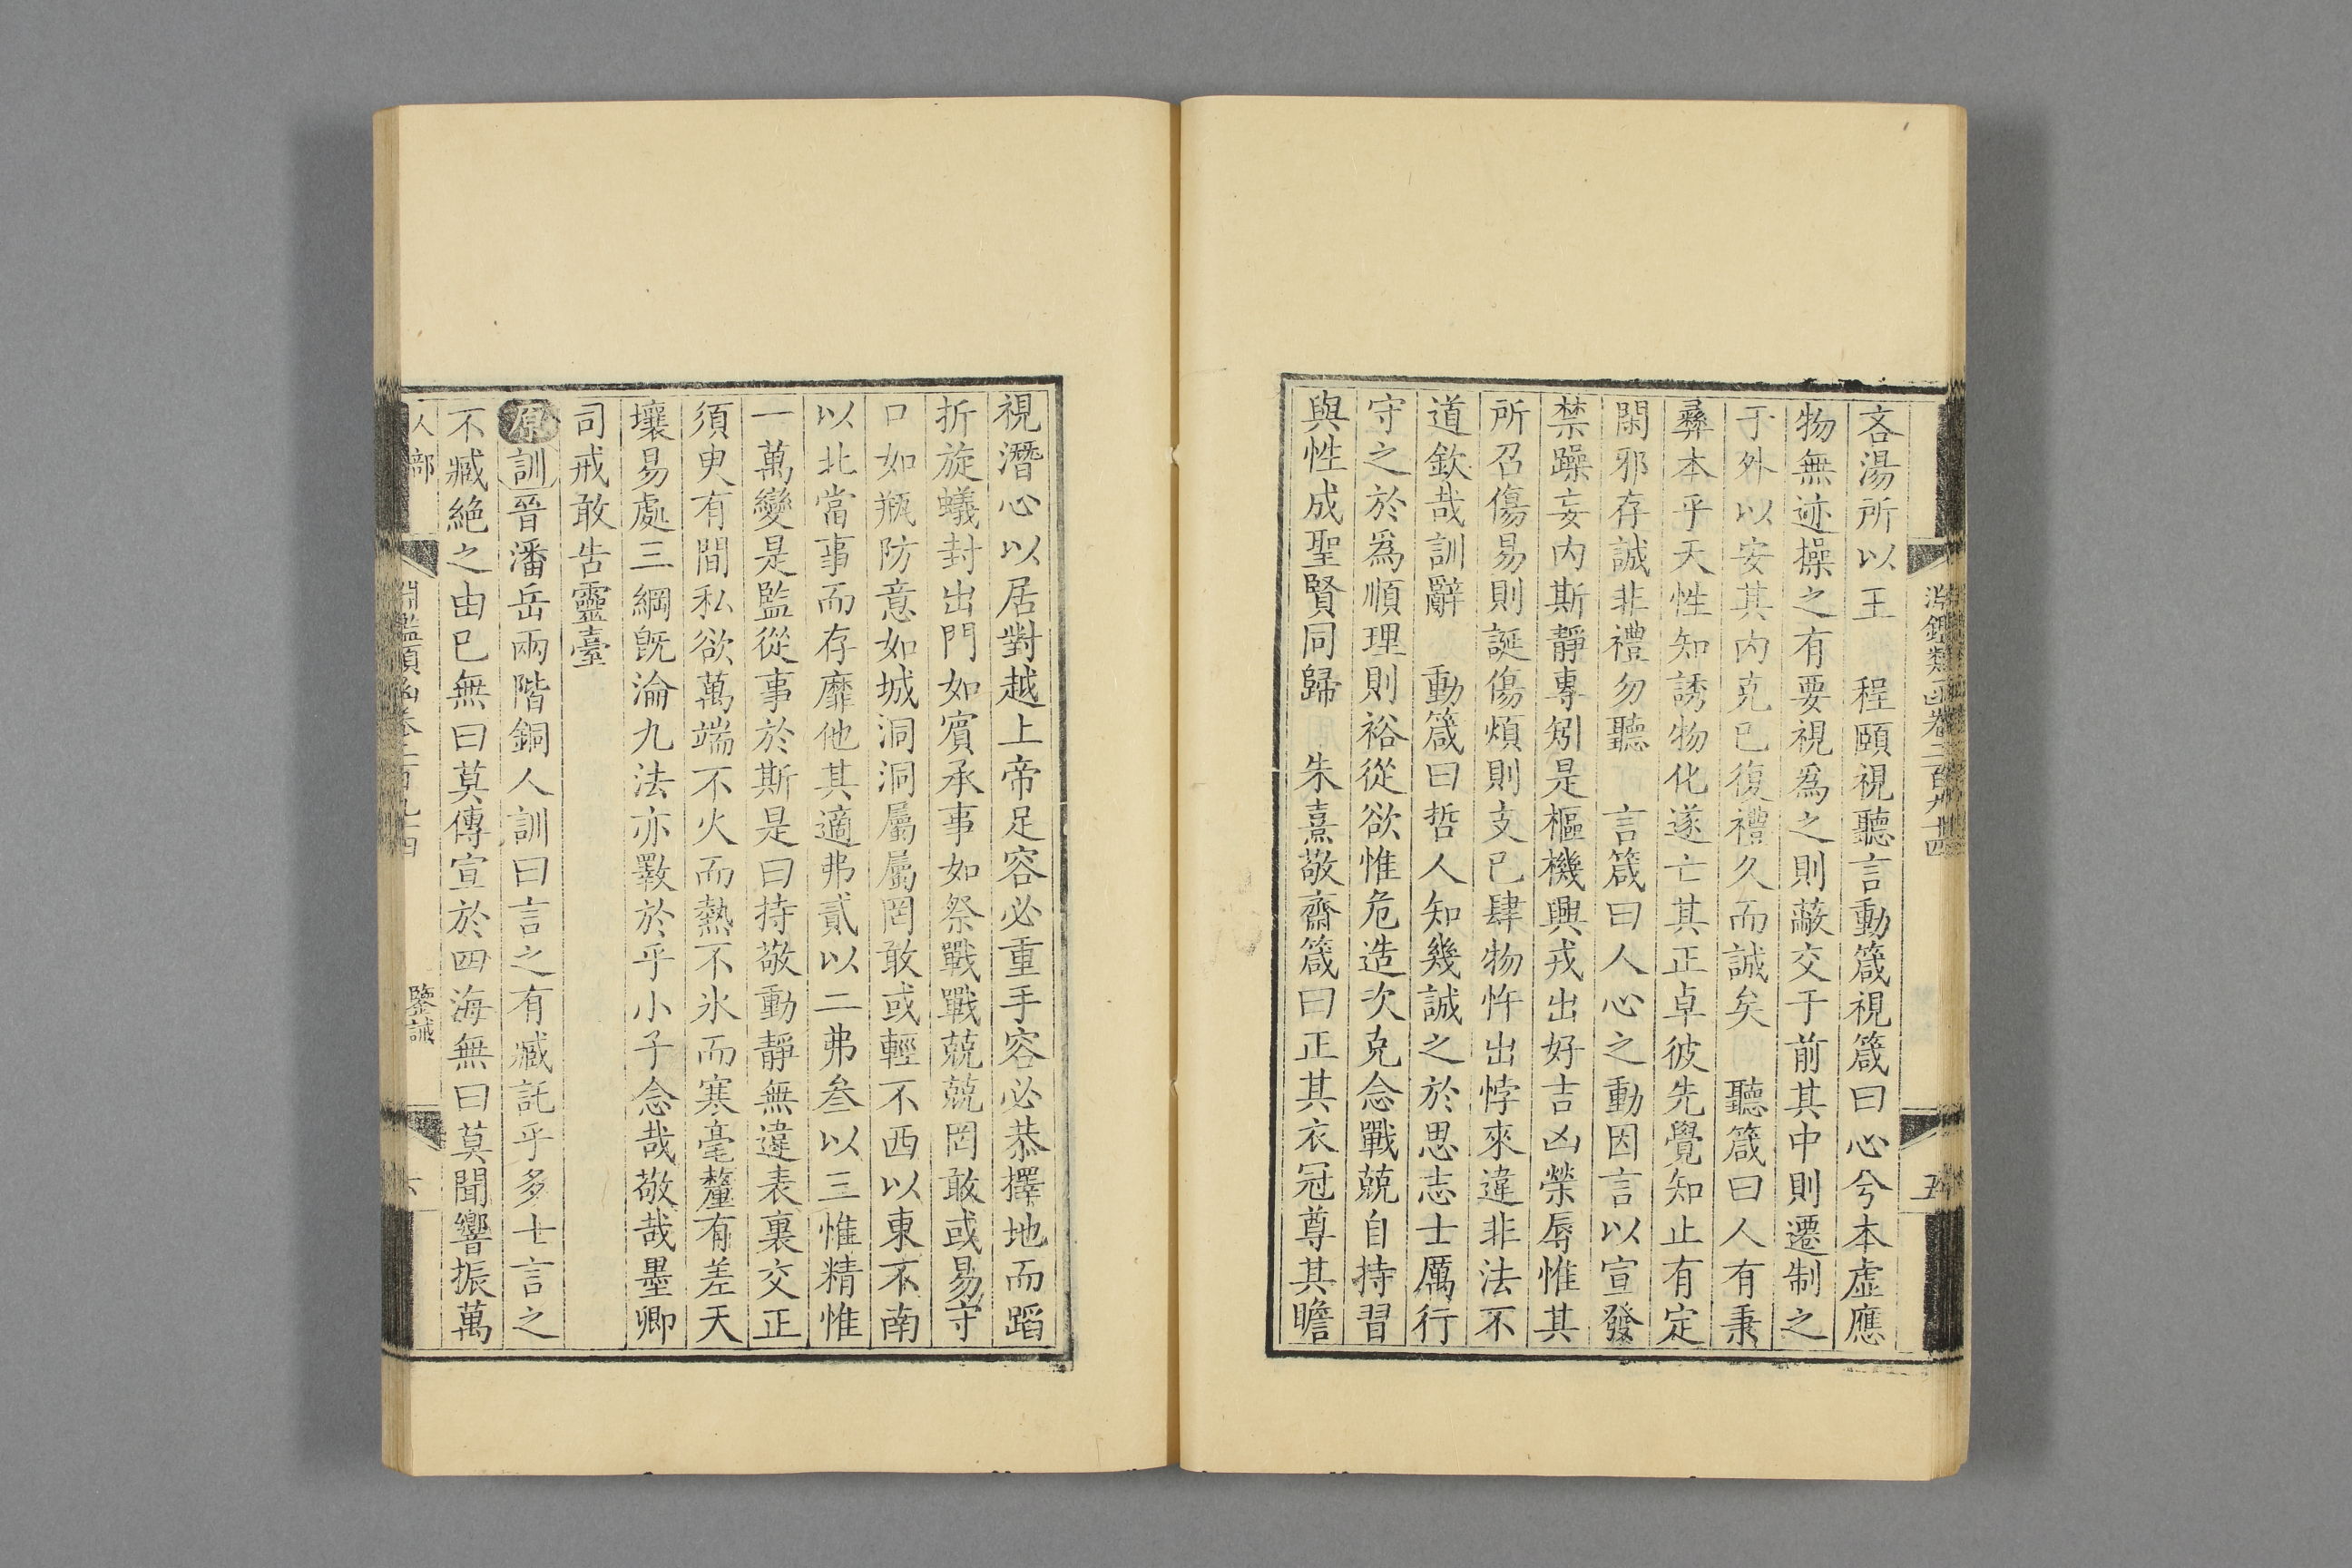 淵鑑類函卷二百九十四
五
吝湯所以王　程頤視聽言動箴視箴曰心兮本虛應
物無迹操之有要視爲之則蔽交于前其中則遷制之
于外以安其内克已復禮久而誠矣　聽箴曰人有秉
彞本乎天性知誘物化遂亡其正卓彼先覺知止有定
閑邪存誠非禮勿聽　言箴曰人心之動因言以宣發
禁躁妄内斯靜專矧是樞機興戎出好吉凶榮辱惟其
所召傷易則誕傷煩則支已肆物忤出悖來違非法不
道欽哉訓辭　動箴曰哲人知幾誠之於思志士厲行
守之於爲順理則裕從欲惟危造次克念戰兢自持習
與性成聖賢同歸　朱熹敬齋箴曰正其衣冠尊其瞻
視潛心以居對越上帝足容必重手容必恭擇地而蹈
折旋蟻封出門如賓承事如祭戰戰兢兢罔敢或易守
口如瓶防意如城洞洞屬屬罔敢或輕不西以東不南
以北當事而存靡他其適弗貳以二弗叁以三惟精惟
一萬變是監從事於斯是曰持敬動靜無違表裏交正
須臾有間私欲萬端不火而熱不氷而寒毫釐有差天
壤易處三綱旣淪九法亦斁於乎小子念哉敬哉墨卿
司戒敢告靈臺
原訓晉潘岳兩階銅人訓曰言之有臧託乎多士言之
不臧絕之由已無曰莫傳宣於四海無曰莫聞響振萬
人部
淵鑑類函卷二百九十四
鑒誡
六